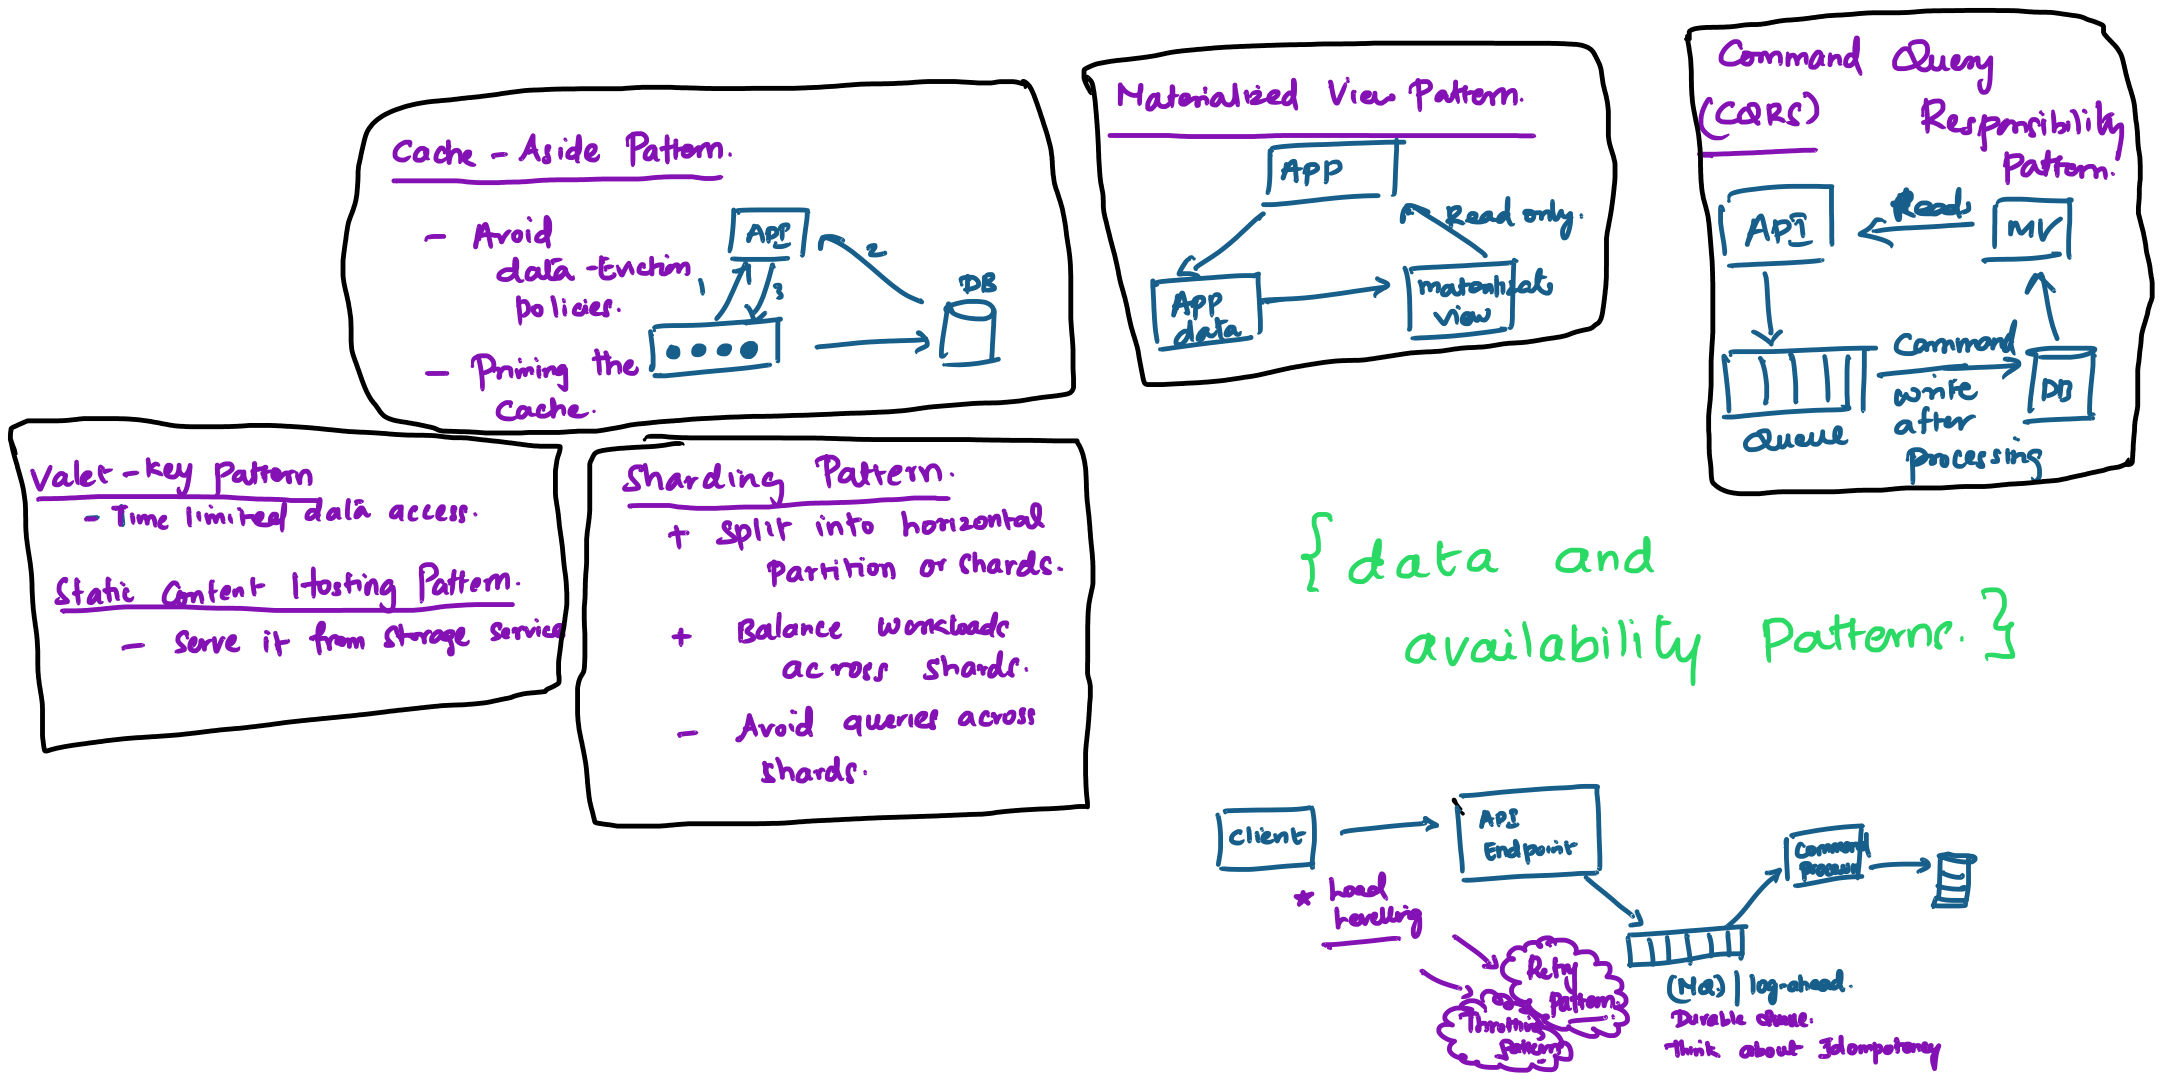 Cache-Aside Pattern.
- Avoid
data-Eviction
policies.
- Priming the
Cache.
APP
1
3
2
DB
Materialized View Pattern.
APP
Read only.
APP
data
view
Command Query
(CQRS) Responsibility
Pattern.
API
Read
MV
Command
write
after
processing
Queue
DB
Valet-key pattern
- Time limited data access.
Static Content Hosting Pattern.
- Serve it from storage service
Sharding Pattern.
+ Split into horizontal
partition or shards.
+ Balance workloads
across shards.
- Avoid queries across
shards.
{data and
availability Patterns.}
Client
API
Endpoint
Command
* Load
Levelling
Retry
Pattern.
Throttling
Pattern
(MQ) | log-ahead.
Durable Queue.
Think about Idompotency